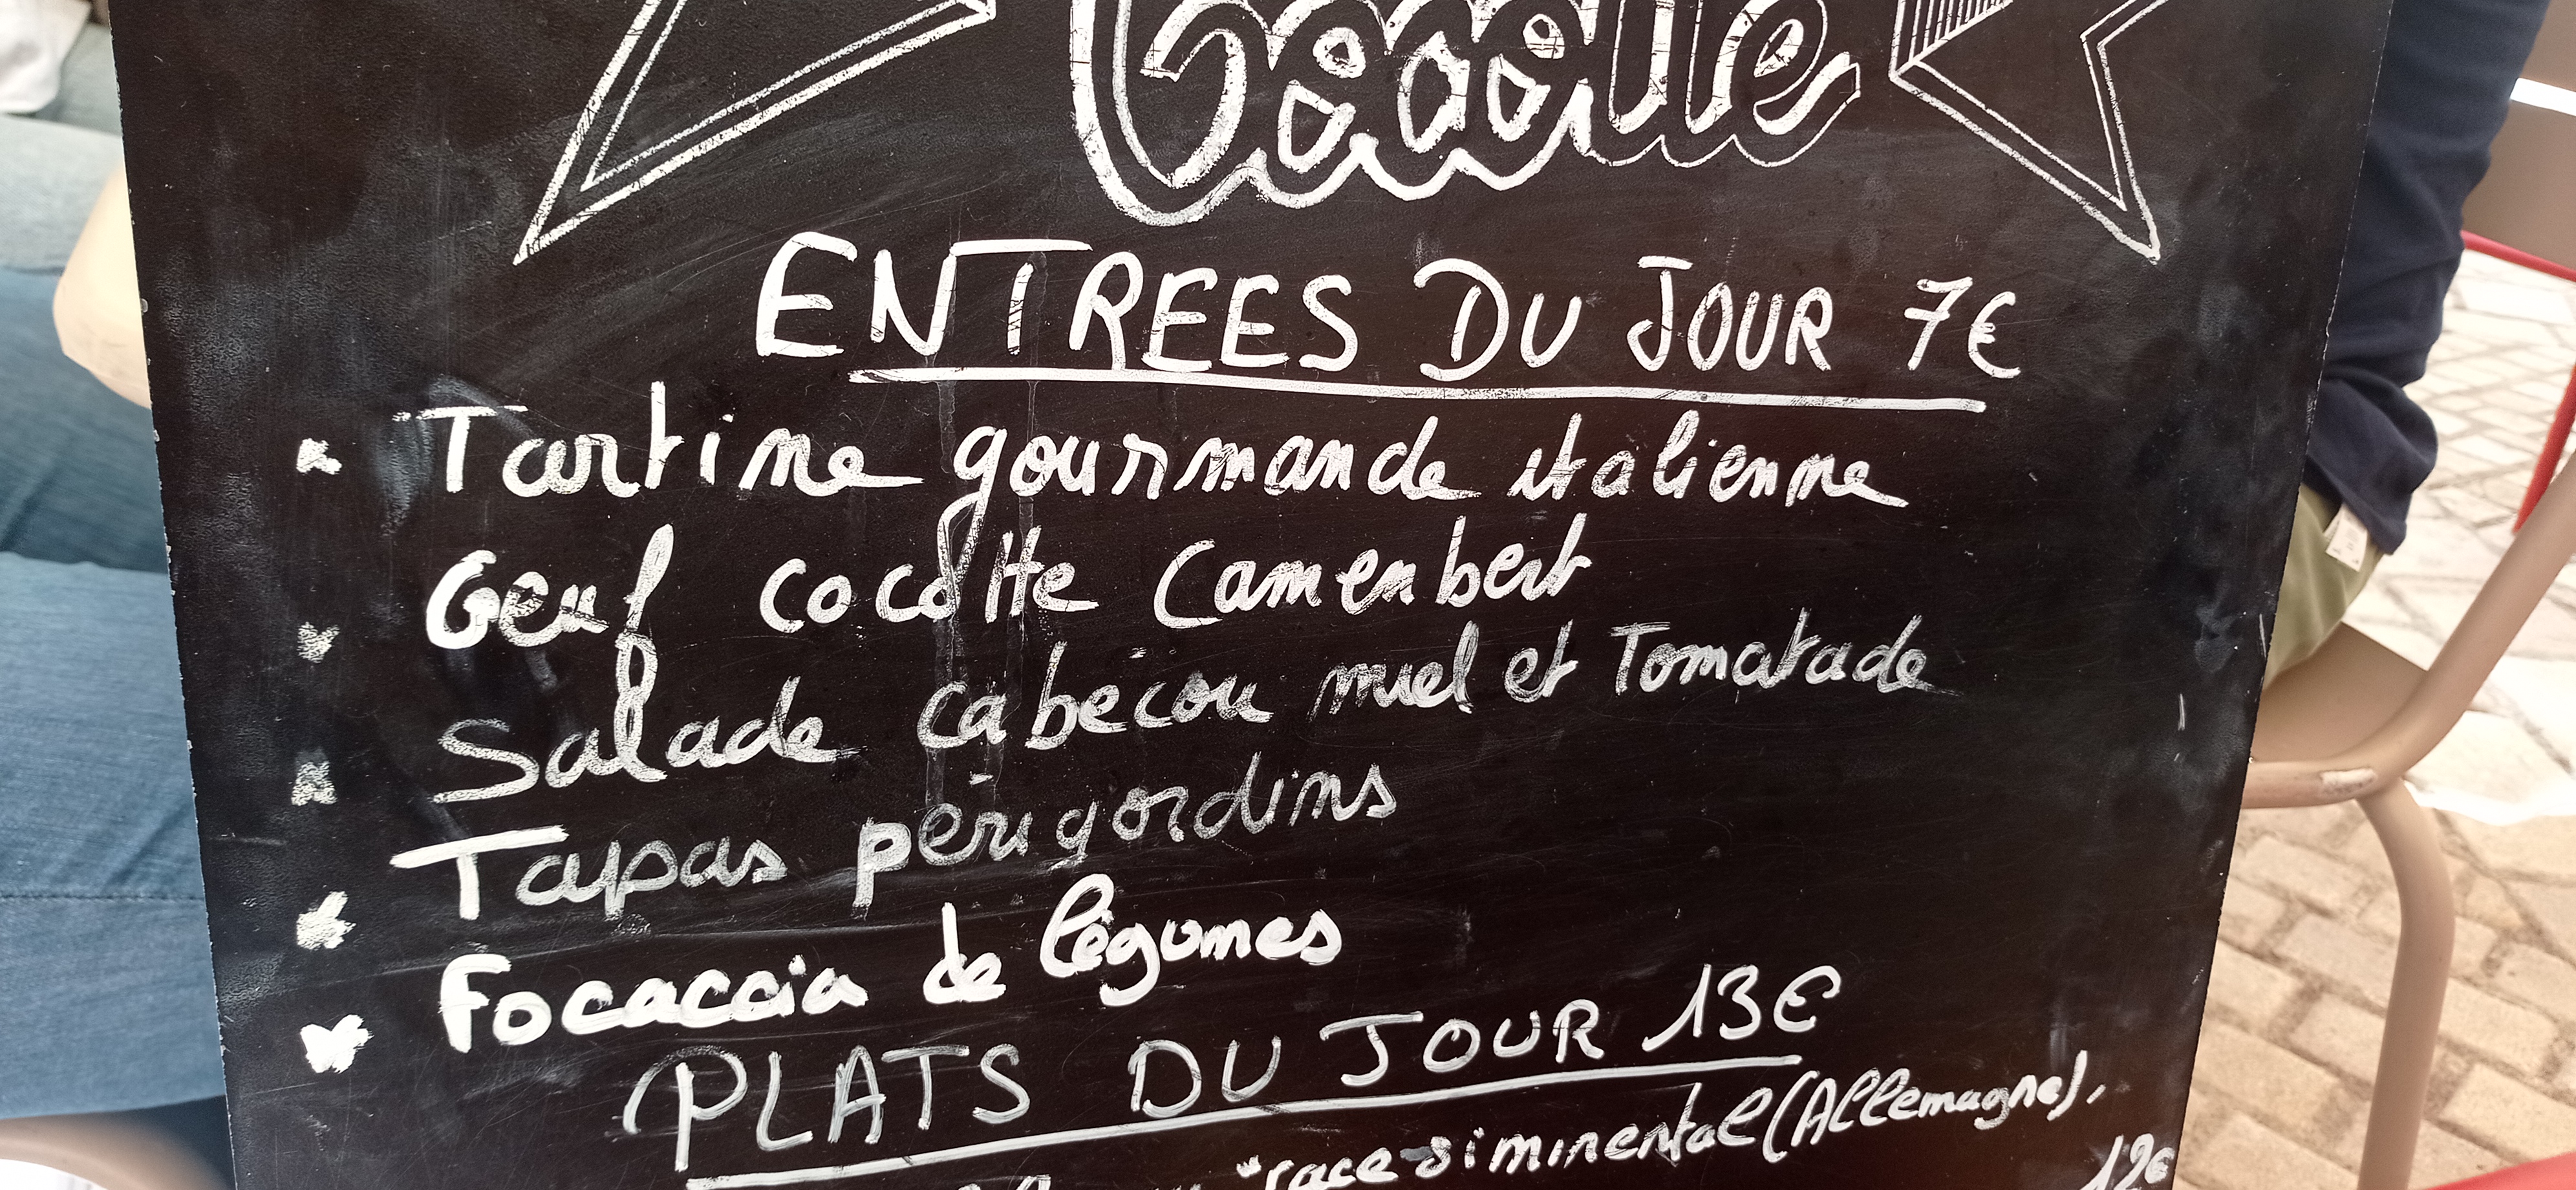 Cocotte
ENTREES DU JOUR 7€
Tartine gourmande italienne
Oeuf cocotte Camenbert
Salade cabecou miel et Tomatade
Tapas périgordins
Focaccia de légumes
PLATS DU JOUR 13€
"race siminental (Allemagne),